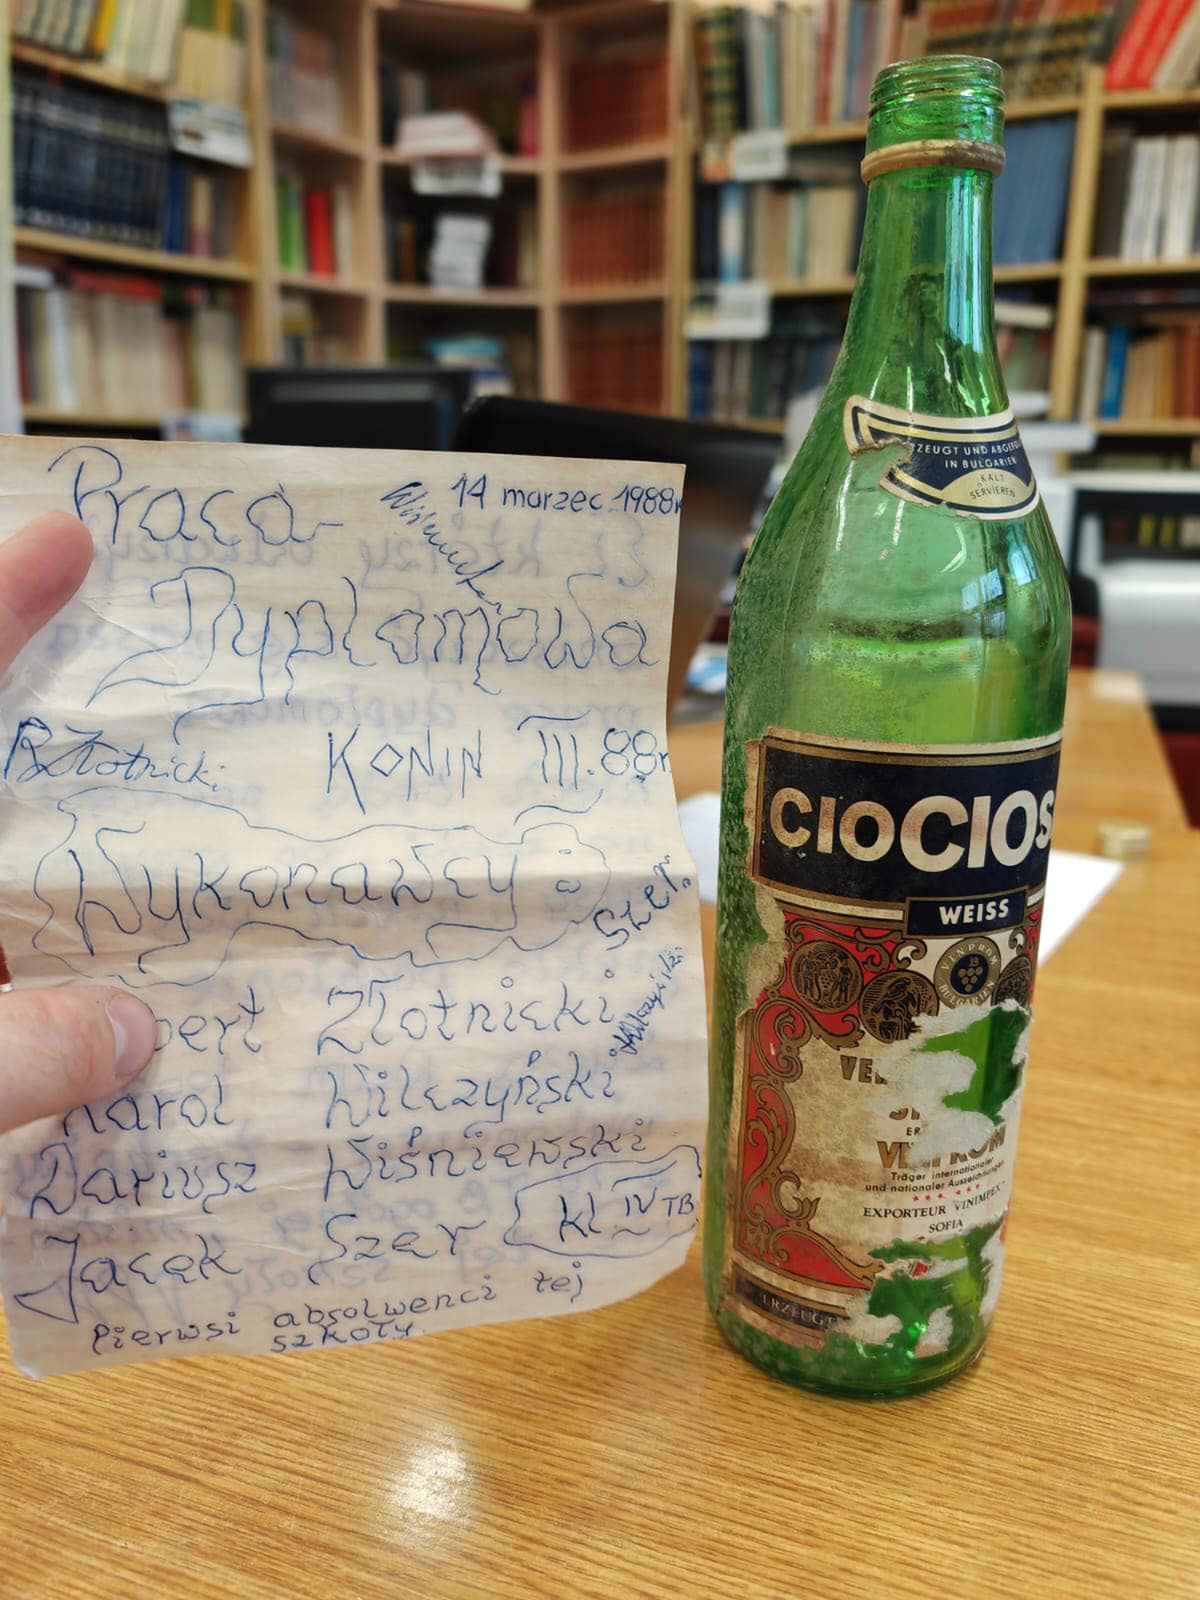 Praca
14 marzec 1988r
Dyplomowa
RZłotnicki
KONIN III.88r.
Wykonawcy:
Szer.
bert Złotnicki
Karol Wilczyński
Dariusz Wiśniewski
Jacek Szer
kl IV TB
Pierwsi absolwenci tej
szkoły.
RZEUGT UND ABGEFÜ
IN BULGARIEN
KALT
SERVIEREN
CIOCIOS
WEISS
VINPROM
BULGARIEN
VER
ER
VINPROM
Träger internationaler
und nationaler Auszeichnungen
EXPORTEUR VINIMPEX
SOFIA
ERZEUGT